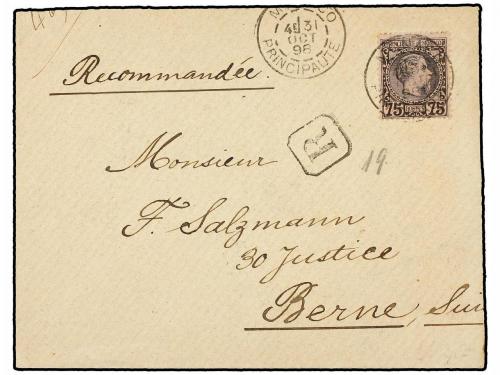 MONACO
4E 31
OCT
98
PRINCIPAUTÉ
Recommandée.
75 75
R
19
Monsieur
F. Salzmann
30 Justice
Berne, Sui